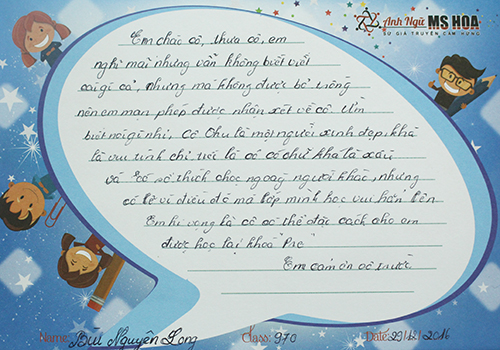 Anh Ngữ MS HOA
SỨ GIẢ TRUYỀN CẢM HỨNG
Em chào cô, thưa cô, em
nghĩ mãi nhưng vẫn không biết viết
cái gì cả, nhưng mà không được bỏ trống
nên em mạn phép được nhận xét về cô. Uhm
biết nói gì nhỉ, cô Thu là một người xinh đẹp, khá
là vui tính chỉ là cô có chữ khá là xấu
và có sở thích chọc ngoáy người khác, nhưng
có lẽ vì điều đó mà lớp mình học vui hơn hẳn
Em hi vọng là cô có thể đặc cách cho em
được học lại khoá Pre
Em cảm ơn cô trước
Name: Bùi Nguyên Long Class: 970 Date: 29/12/2016